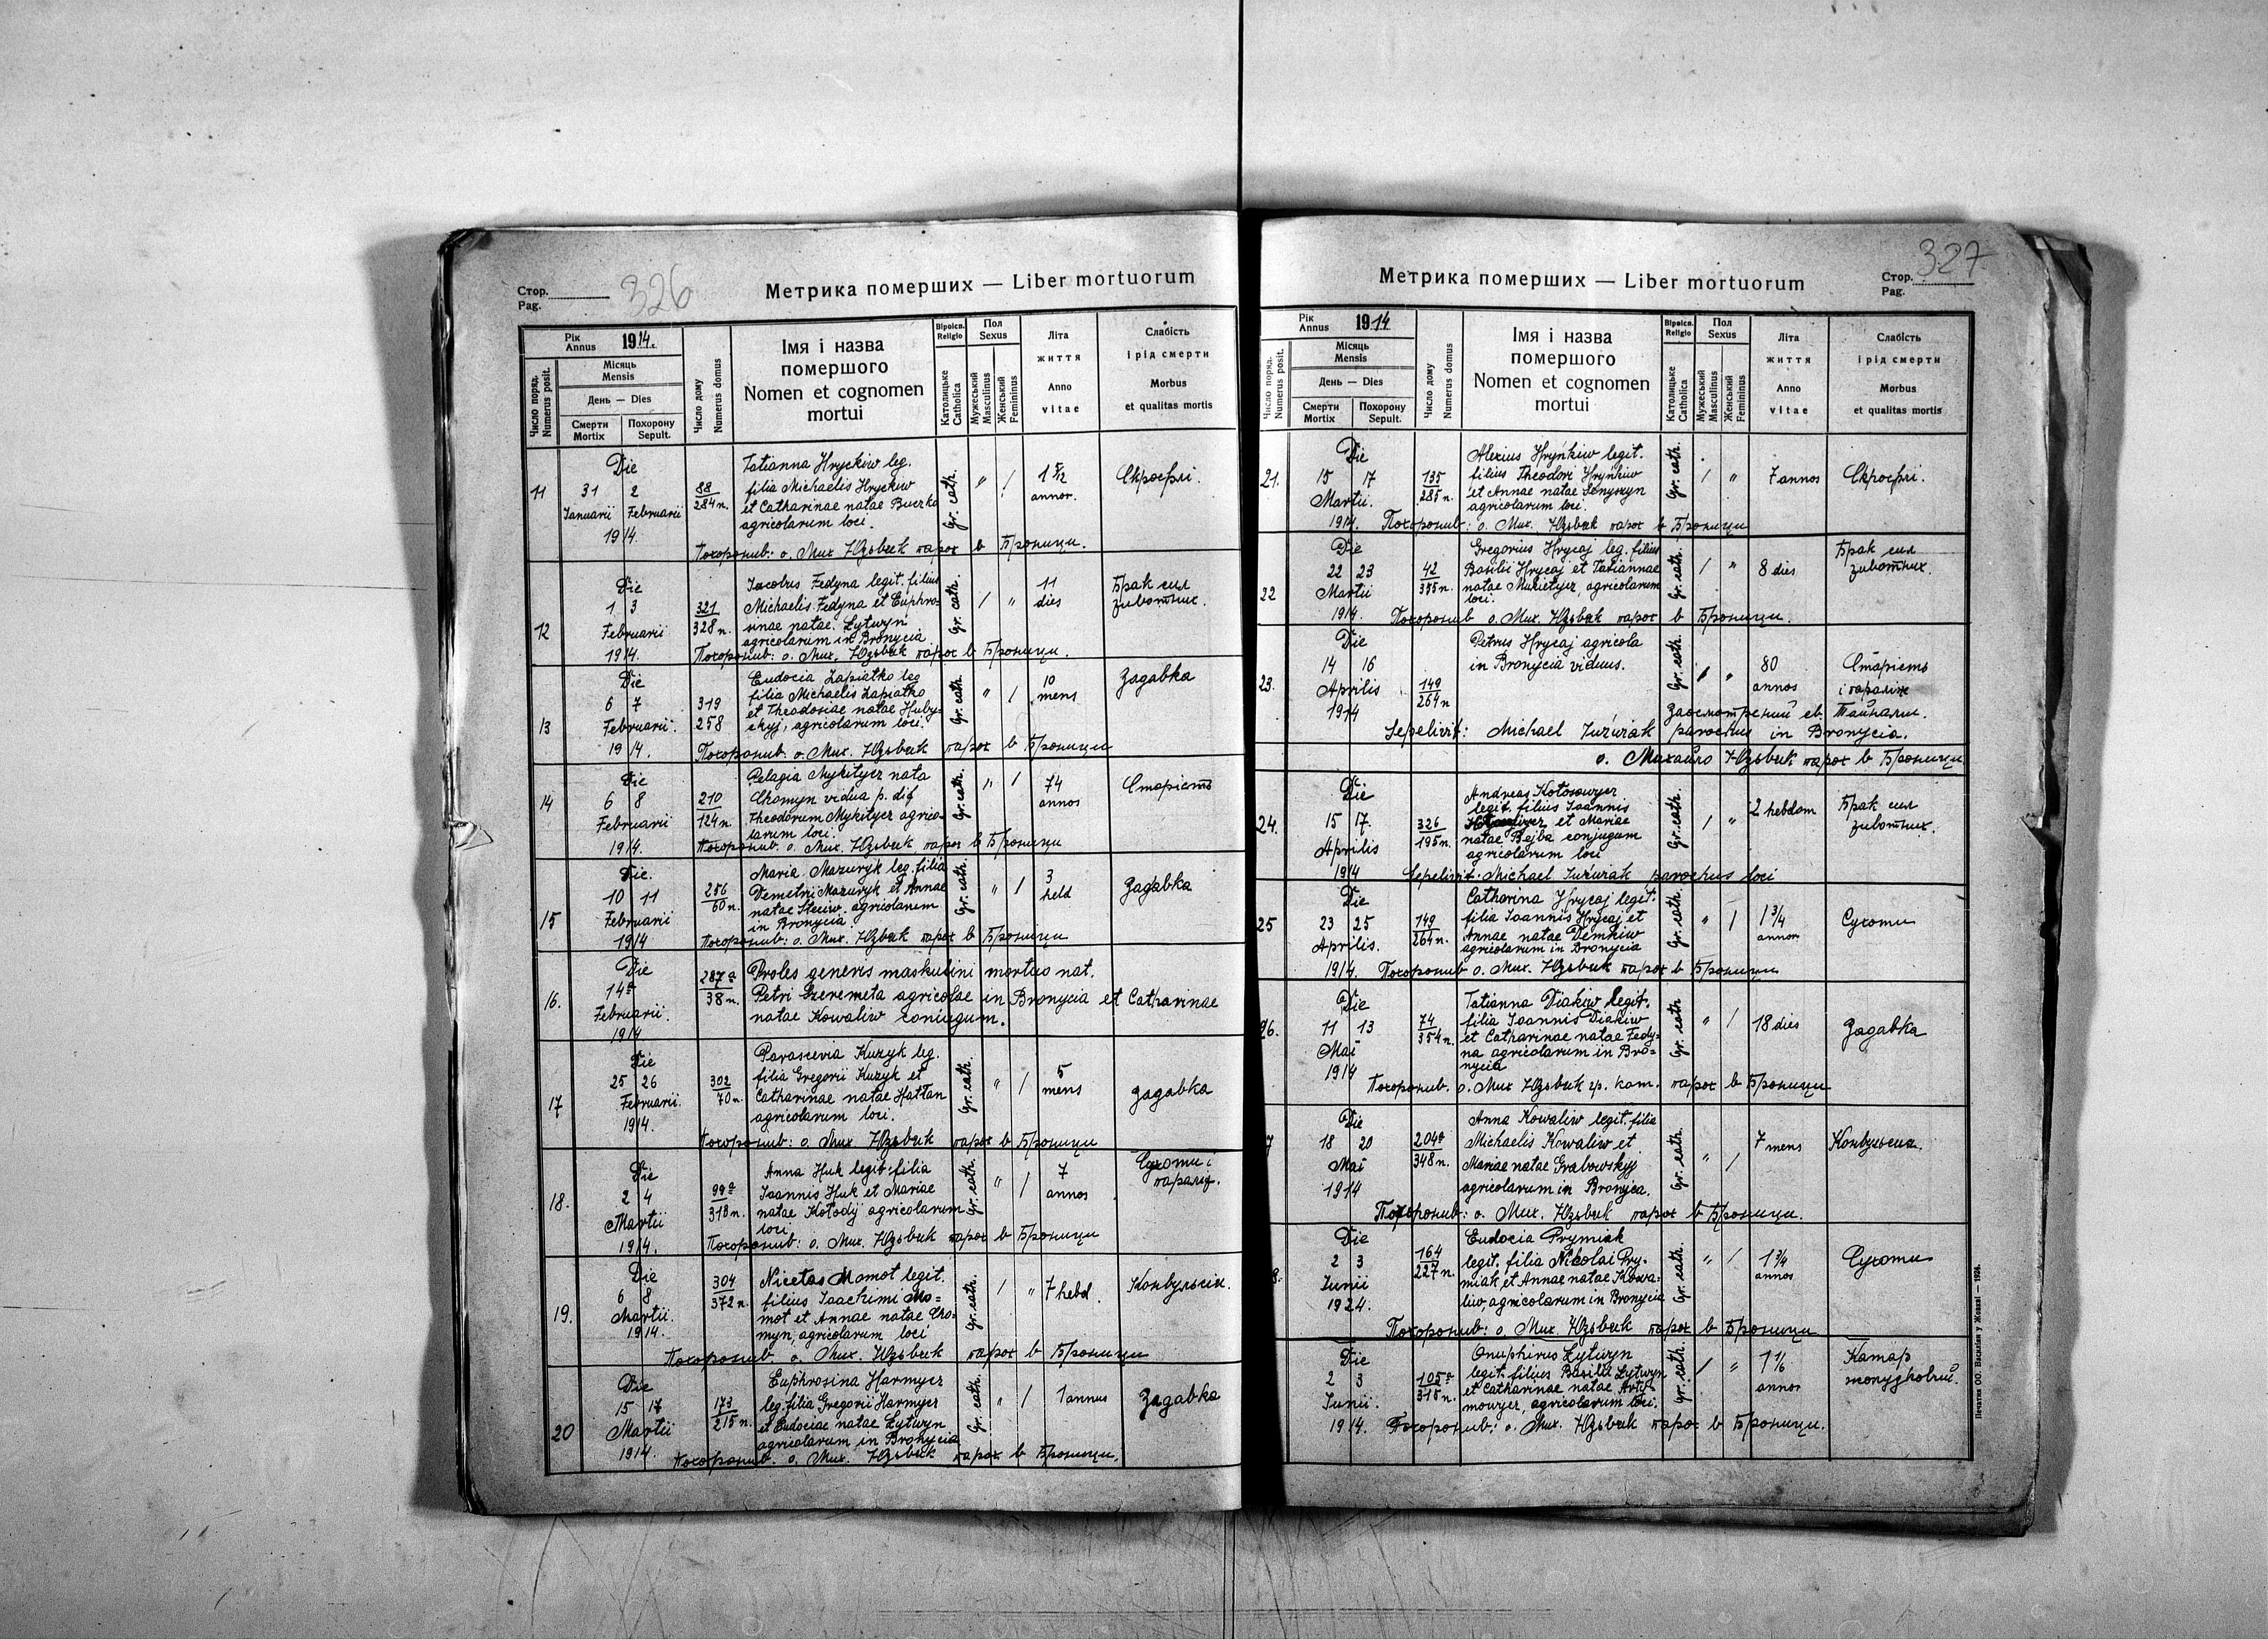 Стор.
Pag.
326
Метрика померших — Liber mortuorum
Рік
Annus
1914.
Місяць
Mensis
День — Dies
Смерти
Mortix
Похорону
Sepult.
Число поряд.
Numerus posit.
Число дому
Numerus domus
Імя і назва
помершого
Nomen et cognomen
mortui
Віроісп.
Religio
Католицьке
Catholica
Пол
Sexus
Мужеський
Masculinus
Женський
Femininus
Літа
життя
Anno
vitae
Слабість
і рід смерти
Morbus
et qualitas mortis
11
Die
31 2
Januarii Februarii
1914.
88
284 n.
Tatianna Hryckiw leg.
filia Michaelis Hryckiw
et Catharinae natae
agricolarum loci.
Gr. cath.
" /
1 5/12
annor.
Скрофлі.
Похоронив: о. Мих. Юзьвяк парох в Броници.
12
Die
1 3
Februarii
1914.
321
328 n.
Jacobus Fedyna legit. filius
Michaelis Fedyna et Euphro-
sinae natae. Łytwyn
agricolarum in Bronycia.
Gr. cath.
/ "
11
dies
Брак сил
животних.
Похоронив: о. Мих. Юзьвяк парох в Броници.
13
Die
6 7
Februarii.
1914.
319
258
Eudocia Łapiatko leg
filia Michaelis Łapiatko
et Theodosiae natae Huby-
ckyj, agricolarum loci.
Gr. cath.
" /
10
mens
Задавка
Похоронив о. Мих. Юзьвяк парох в Броници
14
Die
6 8
Februarii
1914.
210
124 n.
Pelagia Mykitycz nata
Chomyn vidua p. dif
Theodorum Mykitycz agrico-
larum loci.
Gr. cath.
" /
74
annos
Старість
Похоронив. о. Мих. Юзьвяк, парох в Броници
15
Die.
10 11
Februarii
1914
256
60 n.
Maria Mazuryk leg. filia
Demetri Mazuryk et Annae
natae Steciw. agricolarum
in Bronycia.
Gr. cath.
" /
3
held
Задавка
Похоронив: о. Мих. Юзьвяк парох в Броници
16.
Die
14a
Februarii.
1914
287a
38 n.
Proles generis maskulini mortuo nat.
Petri Szeremeta agricolae in Bronycia et Catharinae
natae Kowaliw coniugum.
17
Die
25 26
Februarii.
1914.
302
70 n.
Parascevia Kuzyk leg.
filia Gregorii Kuzyk et
Catharinae natae Hattan
agricolarum loci.
Gr. cath.
" /
5
mens
Задавка
Похоронив: о. Мих. Юзьвяк парох в Броници
18.
Die
2 4
Martii
1914.
99a
318 n.
Anna Huk legit. filia
Joannis Huk et Mariae
natae Kołodij agricolarum
loci
Gr. cath.
" /
7
annos
Сухоти і
параліч.
Похоронив: о. Мих. Юзьвяк парох в Броници
19.
Die
6 8
Martii.
1914.
304
372 n.
Nicetas Momot legit.
filius Joachimi Mo-
mot et Annae natae Cho-
myn, agricolarum loci
Gr. cath.
/ "
7 hebd.
Конвульсіи.
Похоронив о. Мих. Юзьвяк парох в Броници
20
Die
15 17
Martii
1914.
173
215 n.
Euphrosina Harmycz
leg. filia Gregorii Harmycz
et Eudociae natae Łytwyn
agricolarum in Bronycia
Gr. cath.
" /
1 annus
Задавка
Похоронив. о. Мих. Юзьвяк парох в Броници.
Метрика померших — Liber mortuorum
Стор.
Pag.
327
Рік
Annus
1914
Місяць
Mensis
День — Dies
Смерти
Mortix
Похорону
Sepult.
Число поряд.
Numerus posit.
Число дому
Numerus domus
Імя і назва
помершого
Nomen et cognomen
mortui
Віроісп.
Religio
Католицьке
Catholica
Пол
Sexus
Мужеський
Masculinus
Женський
Femininus
Літа
життя
Anno
vitae
Слабість
і рід смерти
Morbus
et qualitas mortis
21.
Die
15 17
Martii.
1914.
135
285 n.
Alexius Hryńkiw legit.
filius Theodori Hryńkiw
et Annae natae Senyszyn
agricolarum loci.
Gr. cath.
/ "
7 annos
Скрофлі.
Похоронив: о. Мих. Юзьвяк парох в Броници
22
Die
22 23
Martii
1914.
42
Gregorius Hrycaj leg. filius
Basilii Hrycaj et Tatiannae
natae Mukietycz, agricolarum
loci.
Gr. cath.
/ "
8 dies
Брак сил
животних.
Похоронив о. Мих. Юзьвяк парох в Броници.
23.
Die
14 16
Aprilis
1914
149
264 n
Petrus Hrycaj agricola
in Bronycia viduus.
Gr. cath.
/ "
80
annos
Старість
і параліж
Заосмотрений св. Тайнами.
Sepelivit: Michael Juźwiak parochus in Bronycia.
о. Михайло Юзьвяк парох в Броници
24.
Die
15 17.
Aprilis
1914
326
195 n.
Andreas Kołosowycz
legit. filius Joannis
et Mariae
natae Bejba conjugum
agricolarum loci
Gr. cath.
/ "
2 hebdom
Брак сил
животних.
Sepelivit. Michael Juźwiak parochus loci
25
Die
23 25
Aprilis.
1914.
149
264 n.
Catharina Hrycaj legit.
filia Joannis Hrycaj et
Annae natae Demkiw
agricolarum in Bronycia
Gr. cath.
" /
1 3/4
annor
Сухоти
Похоронив о. Мих. Юзьвяк парох в Броници
26.
Die
11 13
Mai
1914
74
354 n.
Tatianna Diakiw legit.
filia Joannis Diakiw
et Catharinae natae Fedy-
na agricolarum in Bro-
nycia
Gr. cath
" /
18 dies
Задавка
Похоронив. о. Мих Юзьвяк гр. кат. парох в Броници
7
Die
18 20
Mai
1914
204a
348 n.
Anna Kowaliw legit. filia
Michaelis Kowaliw et
Mariae natae Grabowskyj
agricolarum in Bronycia.
Gr. cath.
" /
7 mens
Конвульсия.
Похоронив: о. Мих. Юзьвяк парох в Броници.
8.
Die
2 3
Junii
1924.
164
227 n.
Eudocia Prymiak
legit. filia Nikolai Pry-
miak, et Annae natae Kowa-
liw, agricolarum in Bronycia
Gr. cath.
" /
1 3/4
annos
Сухоти
Похоронив: о. Мих. Юзьвяк парох в Броници
Die
2 3
Junii.
1914.
105a
315 n.
Onuphirus Łytwyn
legit. filius Basilii Łytwyn
et Catharinae natae Arty-
mowycz, agricolarum loci.
Gr. cath.
/ "
1 1/6
annos
Катар
жолудковий.
Похоронив: о. Мих. Юзьвяк парох в Броници.
Печатня ОО. Василіян у Жовкві — 1924.